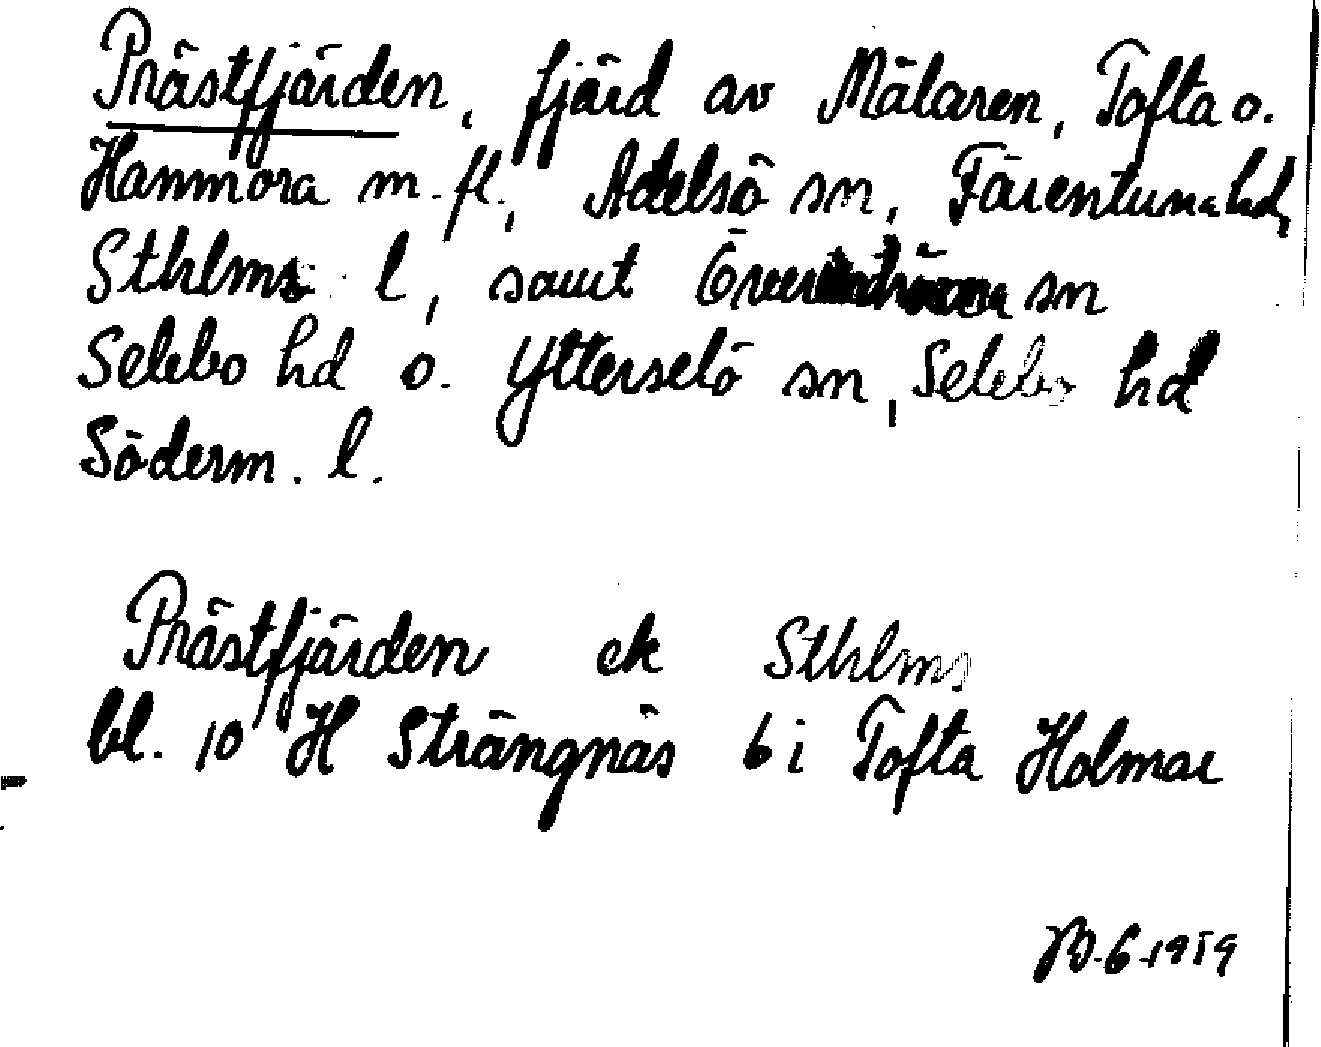 Prästfjärden, fjärd av Mälaren, Tofta o.
Hanmora m.fl., Adelsö sn, Färentuna hd,
Sthlms l, samt sn
Selebo hd o. Ytterselö sn, Selebo hd
Söderm. l.
Prästfjärden ek Sthlms
bl. 10 H Strängnäs 6 i Tofta Holmar
6-1959